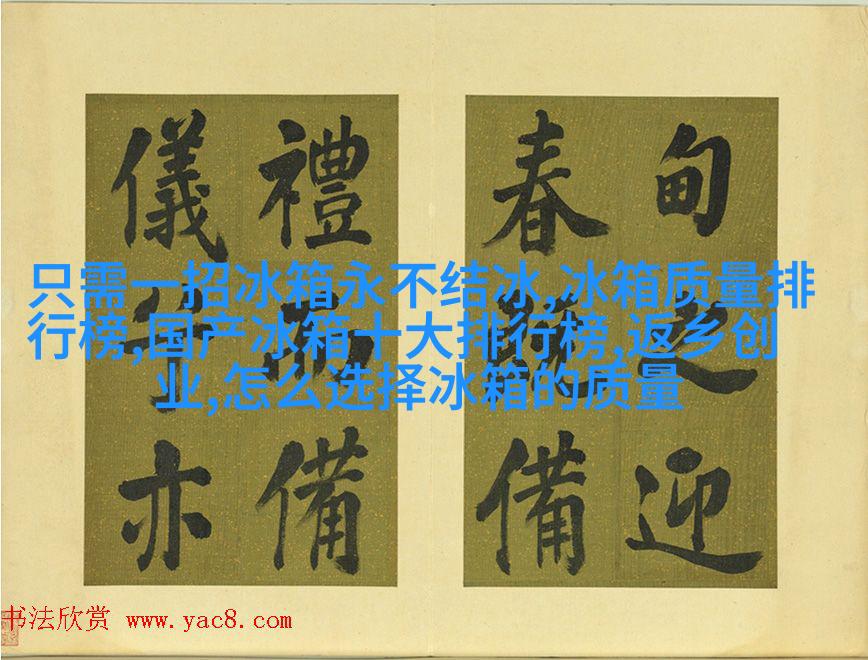 甸之迎
春備
禮而備
儀亦
只需一招冰箱永不结冰,冰箱质量排
行榜,国产冰箱十大排行榜,返乡创
业,怎么选择冰箱的质量
书法欣赏 www.yac8.com